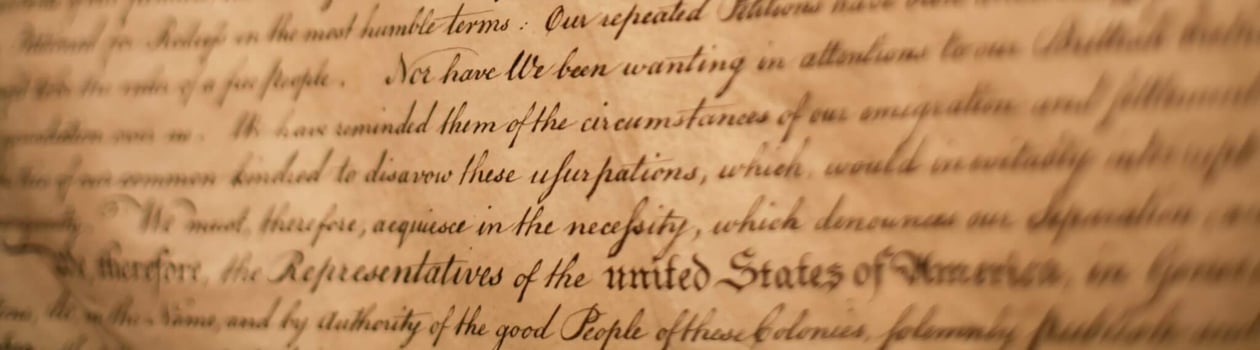 for Redress in the most humble terms : Our repeated Petitions have
of a free People . Nor have We been wanting in attentions to our Brittish
over us . We have reminded them of the circumstances of our emigration and settlement
of our common kindred to disavow these uſurpations, which, would inevitably interrupt
We must, therefore, acquiesce in the neceſsity, which denounces our Separation
We, therefore, the Representatives of the united States of America, in General
in the Name, and by Authority of the good People of these Colonies, solemnly publish and